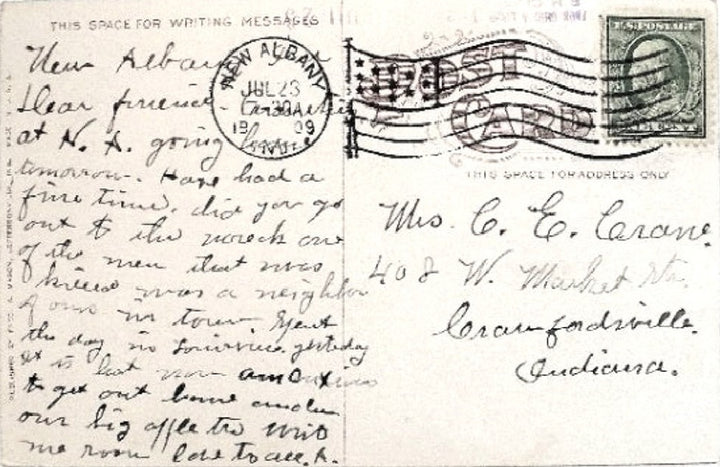 THIS SPACE FOR WRITING MESSAGES
New Albany
Dear friend.
at N. A. going home
tomorrow. Have had a
fine time. did you go
out to the wreck one
of the men that was
killed was a neighbor
of ours in town Spent
the day in Louisville yesterday
it is hot now am anxious
to get out home under
our big apple tree Write
me soon love to all. A.
NEW ALBANY
JUL 23
1909
IND.
POST CARD
U.S. POSTAGE
THIS SPACE FOR ADDRESS ONLY
Mrs. C. E. Crane.
408 W. Market St.
Crawfordsville.
Indiana.